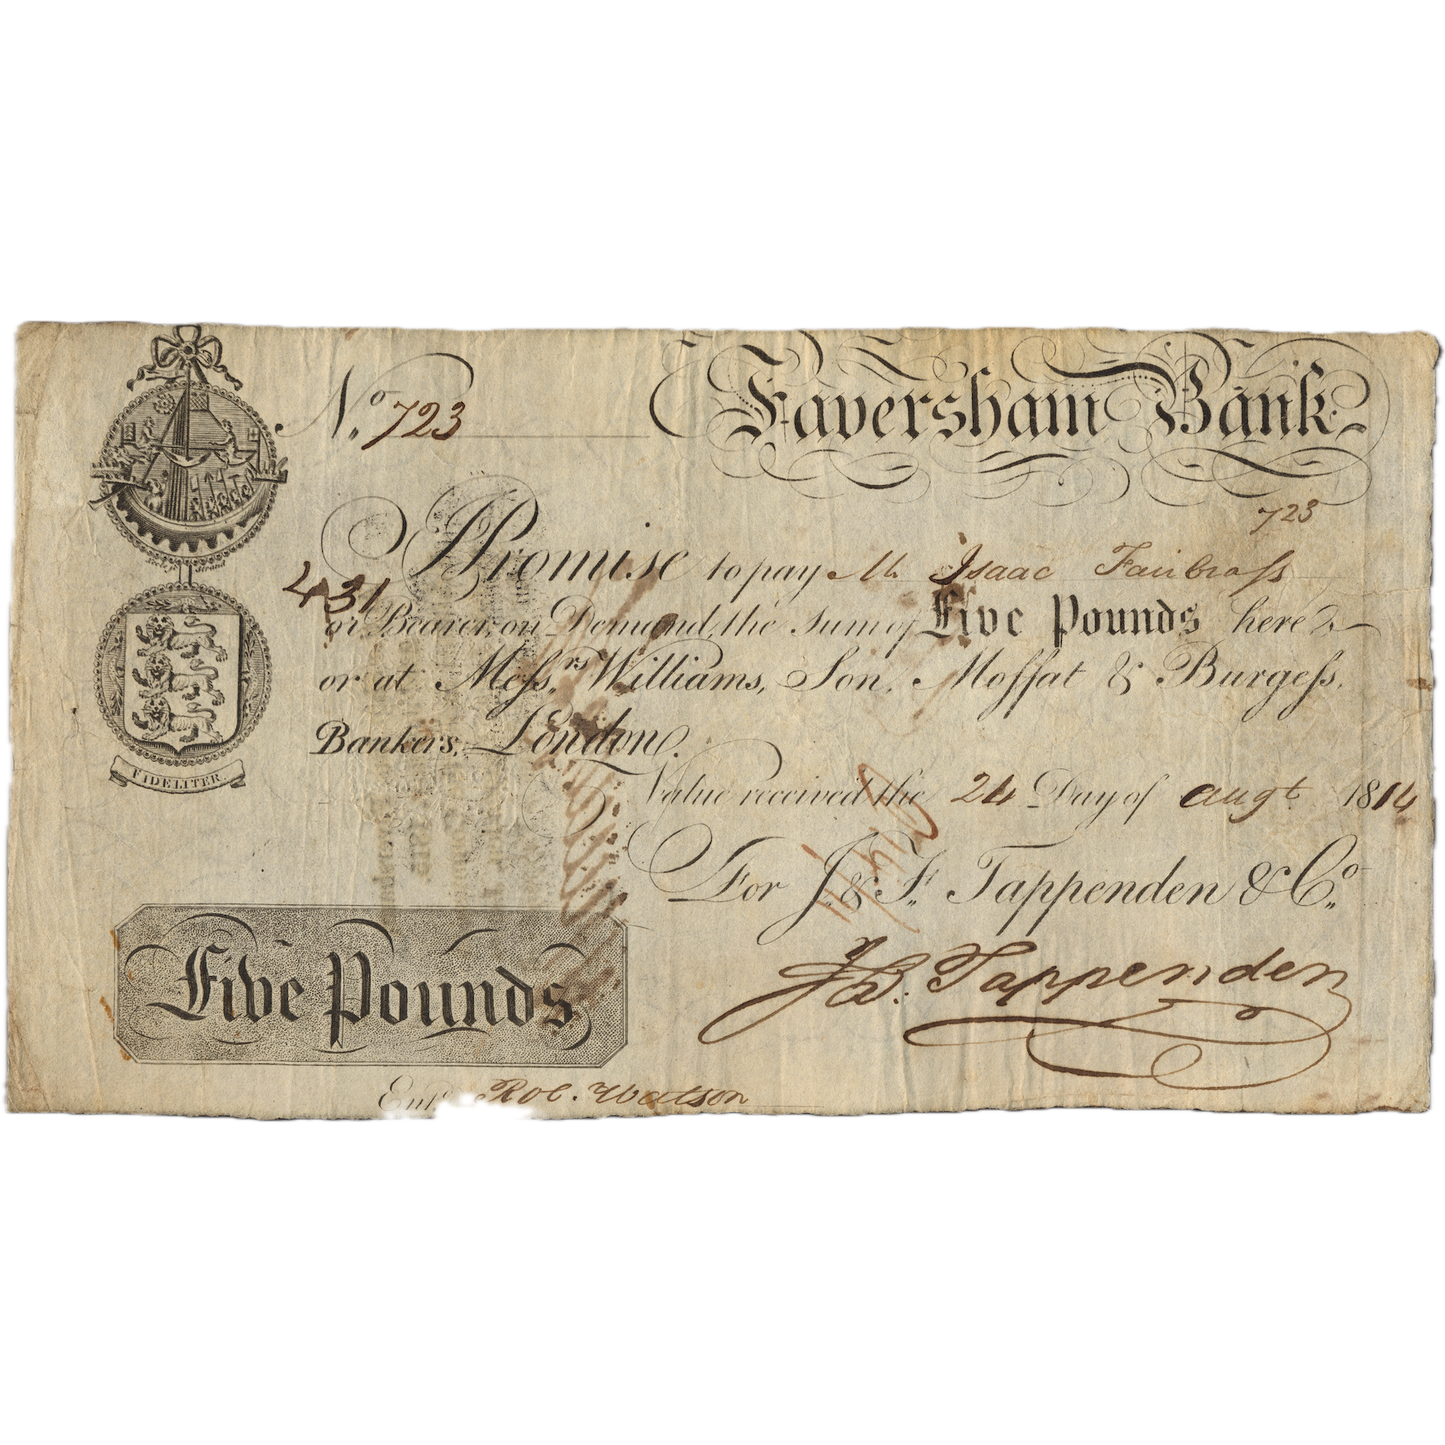 No. 723
Faversham Bank
723
I Promise to pay Mr. Isaac Fairbrass
431
or Bearer, on Demand, the Sum of Five Pounds here
or at Messrs. Williams, Son, Moffat & Burgess,
Bankers, London.
Value received the 24 Day of augt 1814
For J. & F. Tappenden & Co.
J B. Tappenden
FIDELITER
Five Pounds
Entd. Rob. Watson